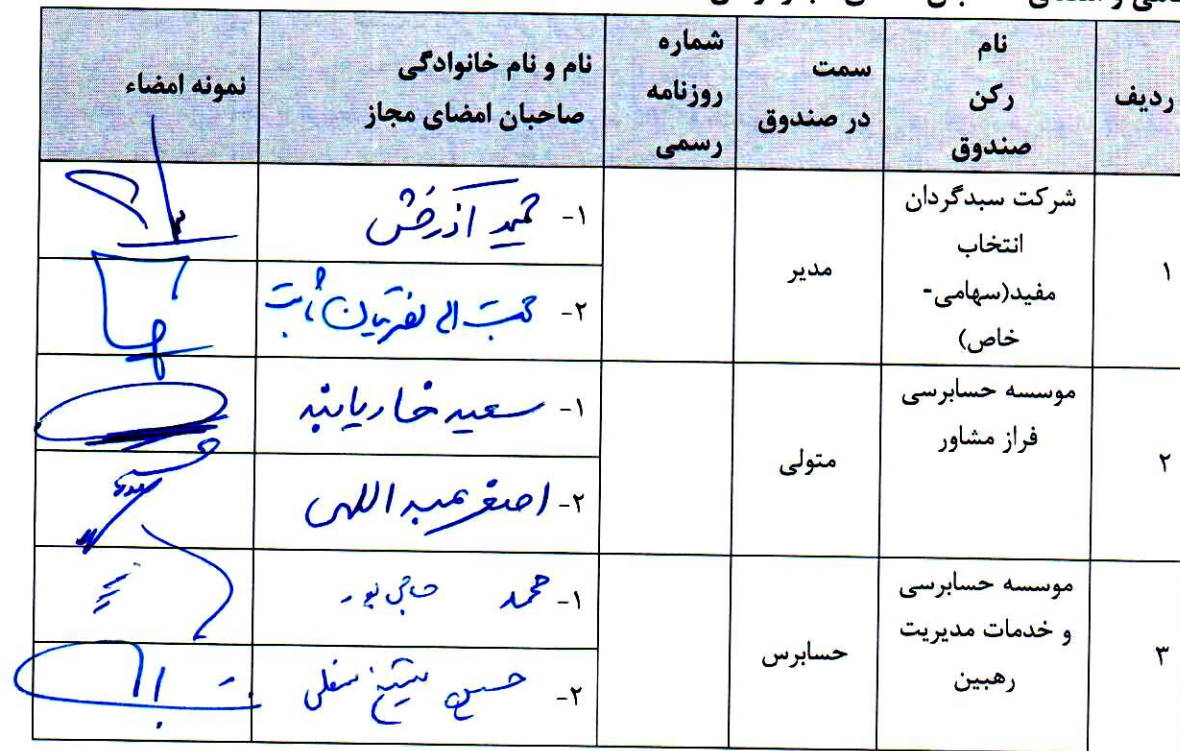 ردیف
نام
رکن
صندوق
سمت
در صندوق
شماره
روزنامه
رسمی
نام و نام خانوادگی
صاحبان امضای مجاز
نمونه امضاء
۱
شرکت سبدگردان
انتخاب
مفید(سهامی-
خاص)
مدیر
۱- حمید آذرخش
۲-
۲
موسسه حسابرسی
فراز مشاور
متولی
۱- سعید خاریابند
۲- اصغر عبداللهی
۳
موسسه حسابرسی
و خدمات مدیریت
رهبین
حسابرس
۱- محمد حاجی پور
۲- حسین شیخ سفلی